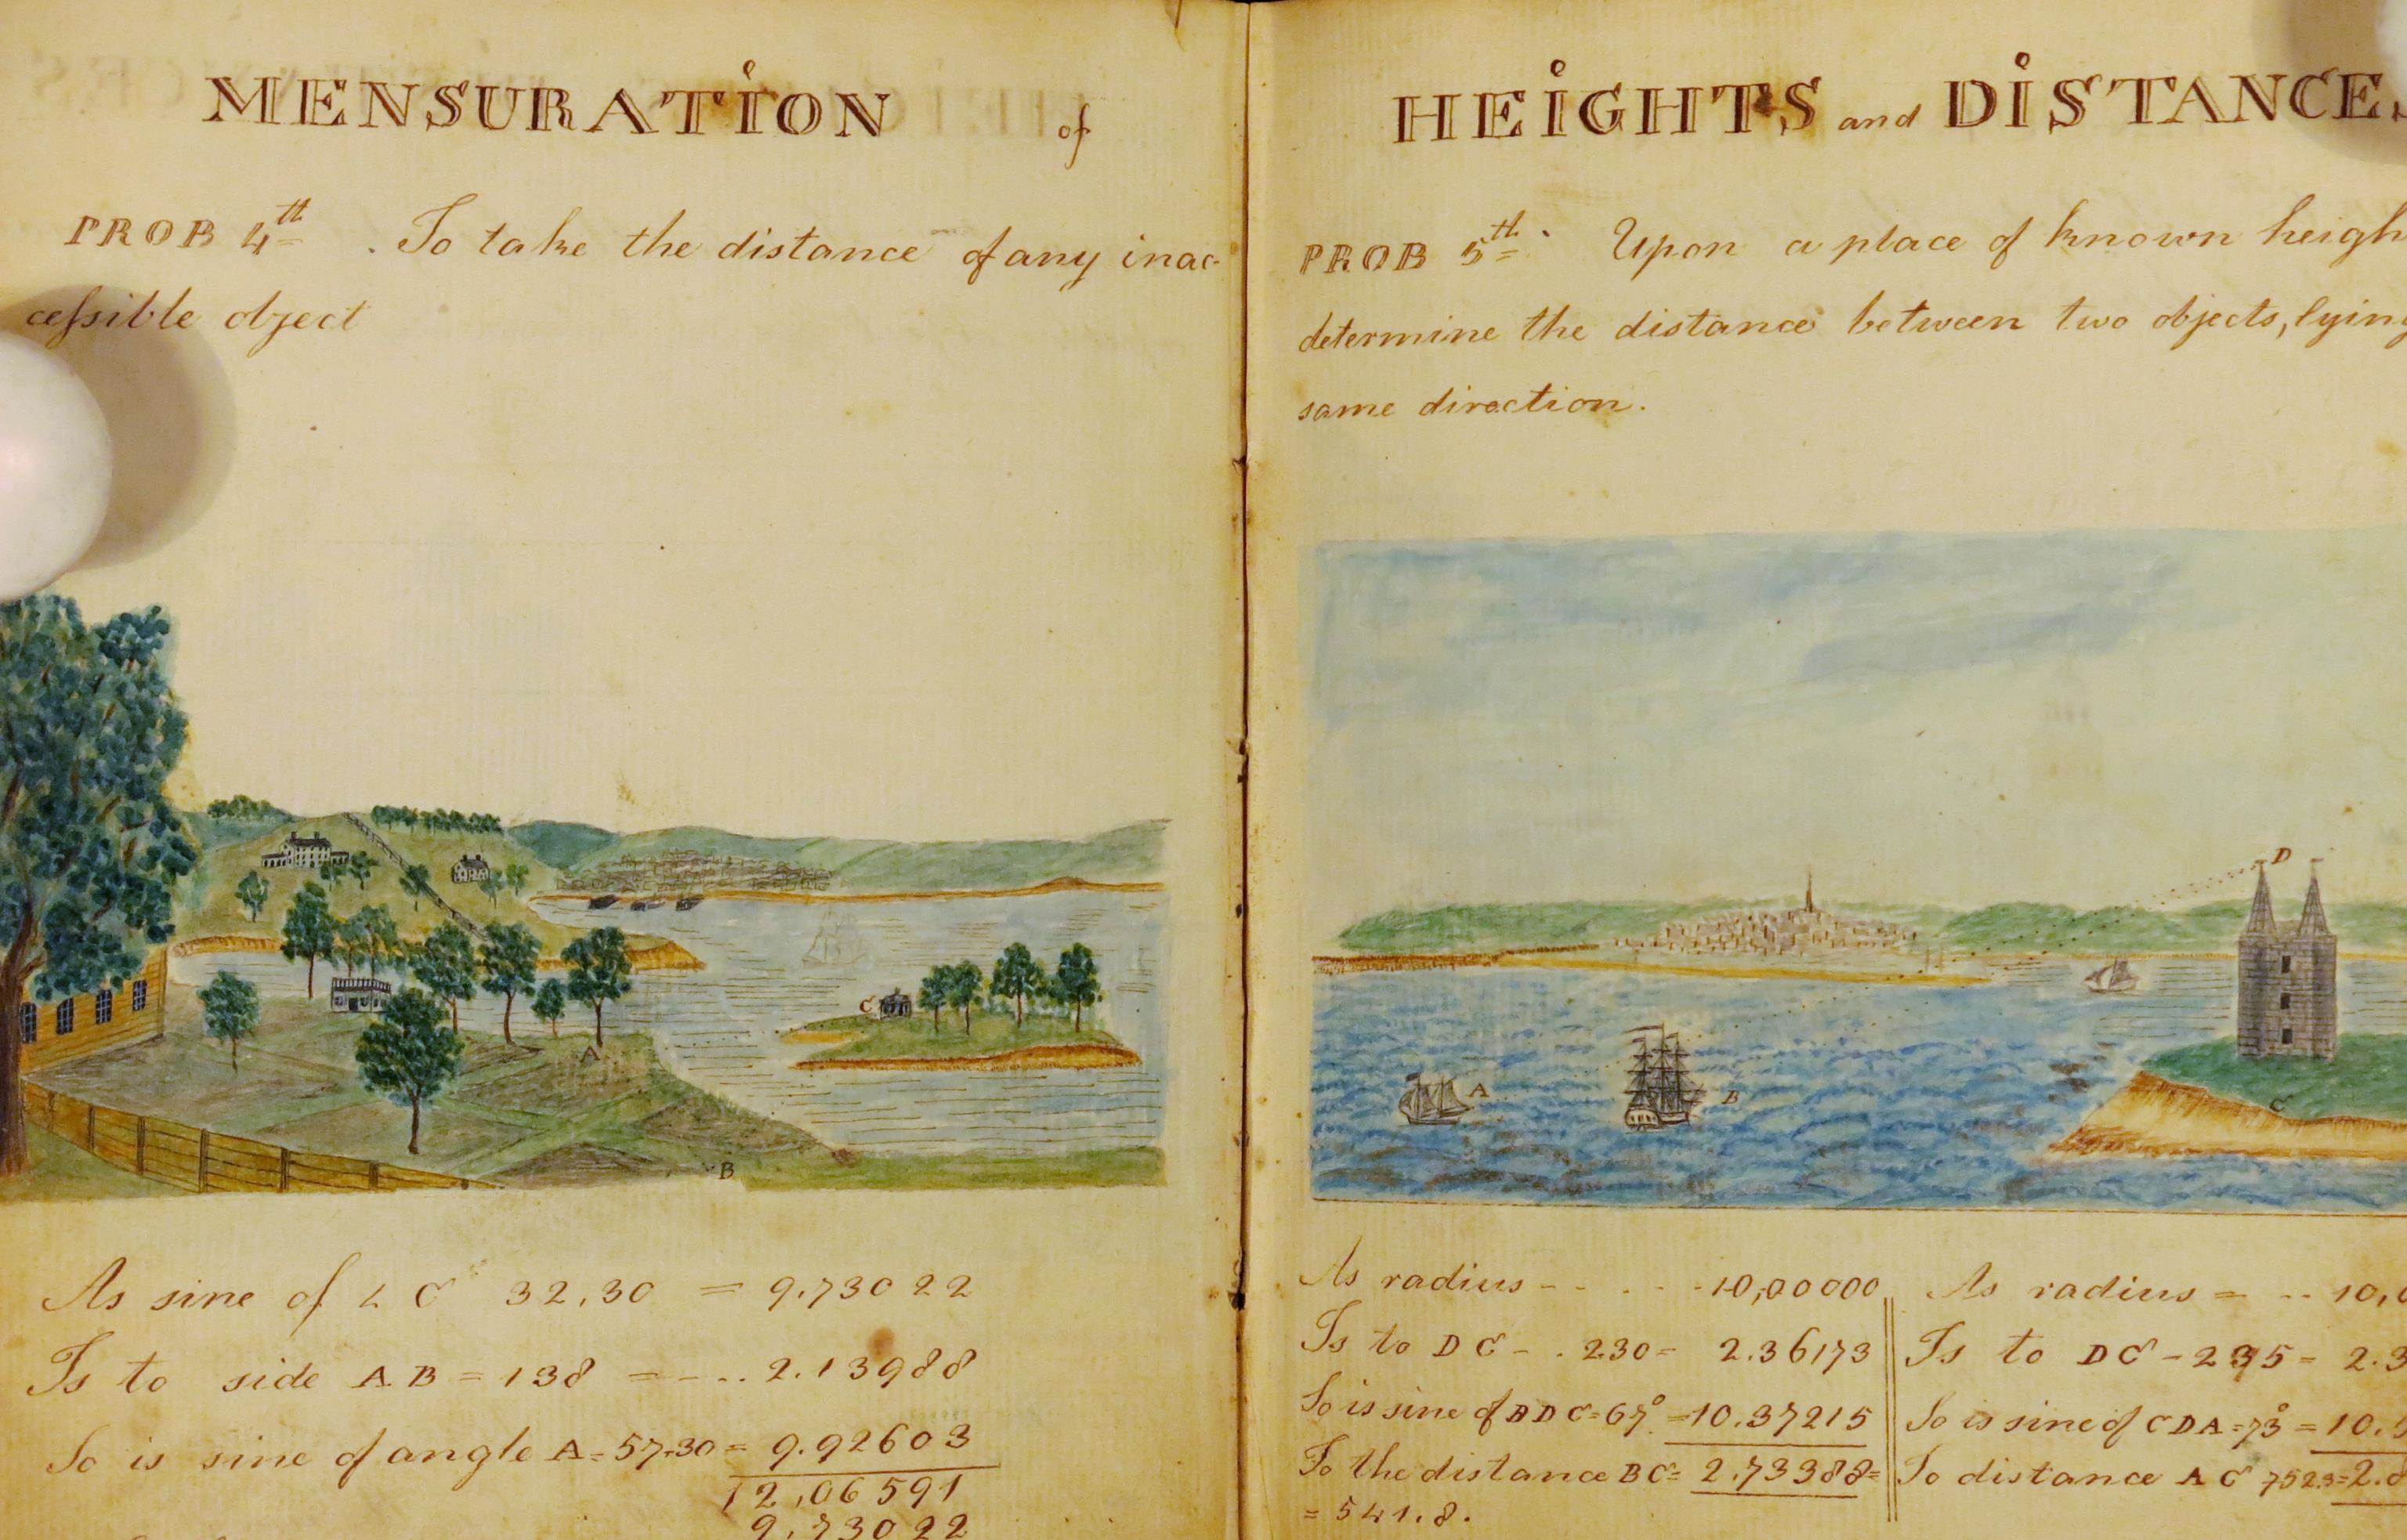 MENSURATION of
PROB 4th . To take the distance of any inac-
cessible object
C
A
B
As sine of ∠ C 32,30 = 9,73022
Is to side AB = 138 = - - .. 2.13988
So is sine of angle A = 57-30 = 9.92603
12,06591
9,73022
HEIGHTS and DISTANCES
PROB 5th . Upon a place of known heigh
determine the distance between two objects, lying
same direction.
D
A
B
C
As radius - - . - - 10,00000
Is to DC - . 230 = 2.36173
So is sine of BDC = 67° = 10.37215
To the distance BC = 2.73388 =
= 541.8.
As radius = - .. 10,0
Is to DC - 235 = 2.3
So is sine of CDA = 73° = 10.5
To distance AC 752.3 = 2.8